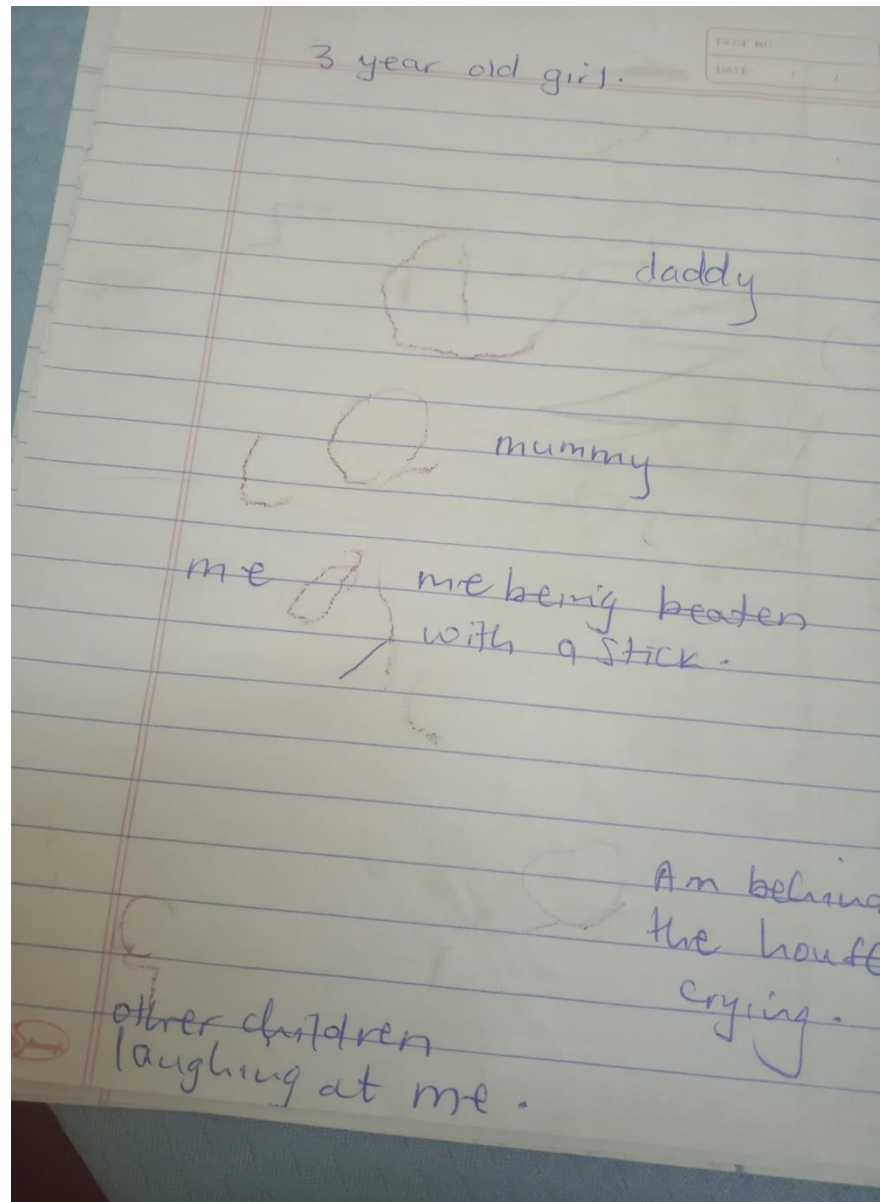 PAGE NO
DATE / /
3 year old girl.
daddy
mummy
me
me being beaten
with a stick.
Am behind
the house
crying.
other children
laughing at me.